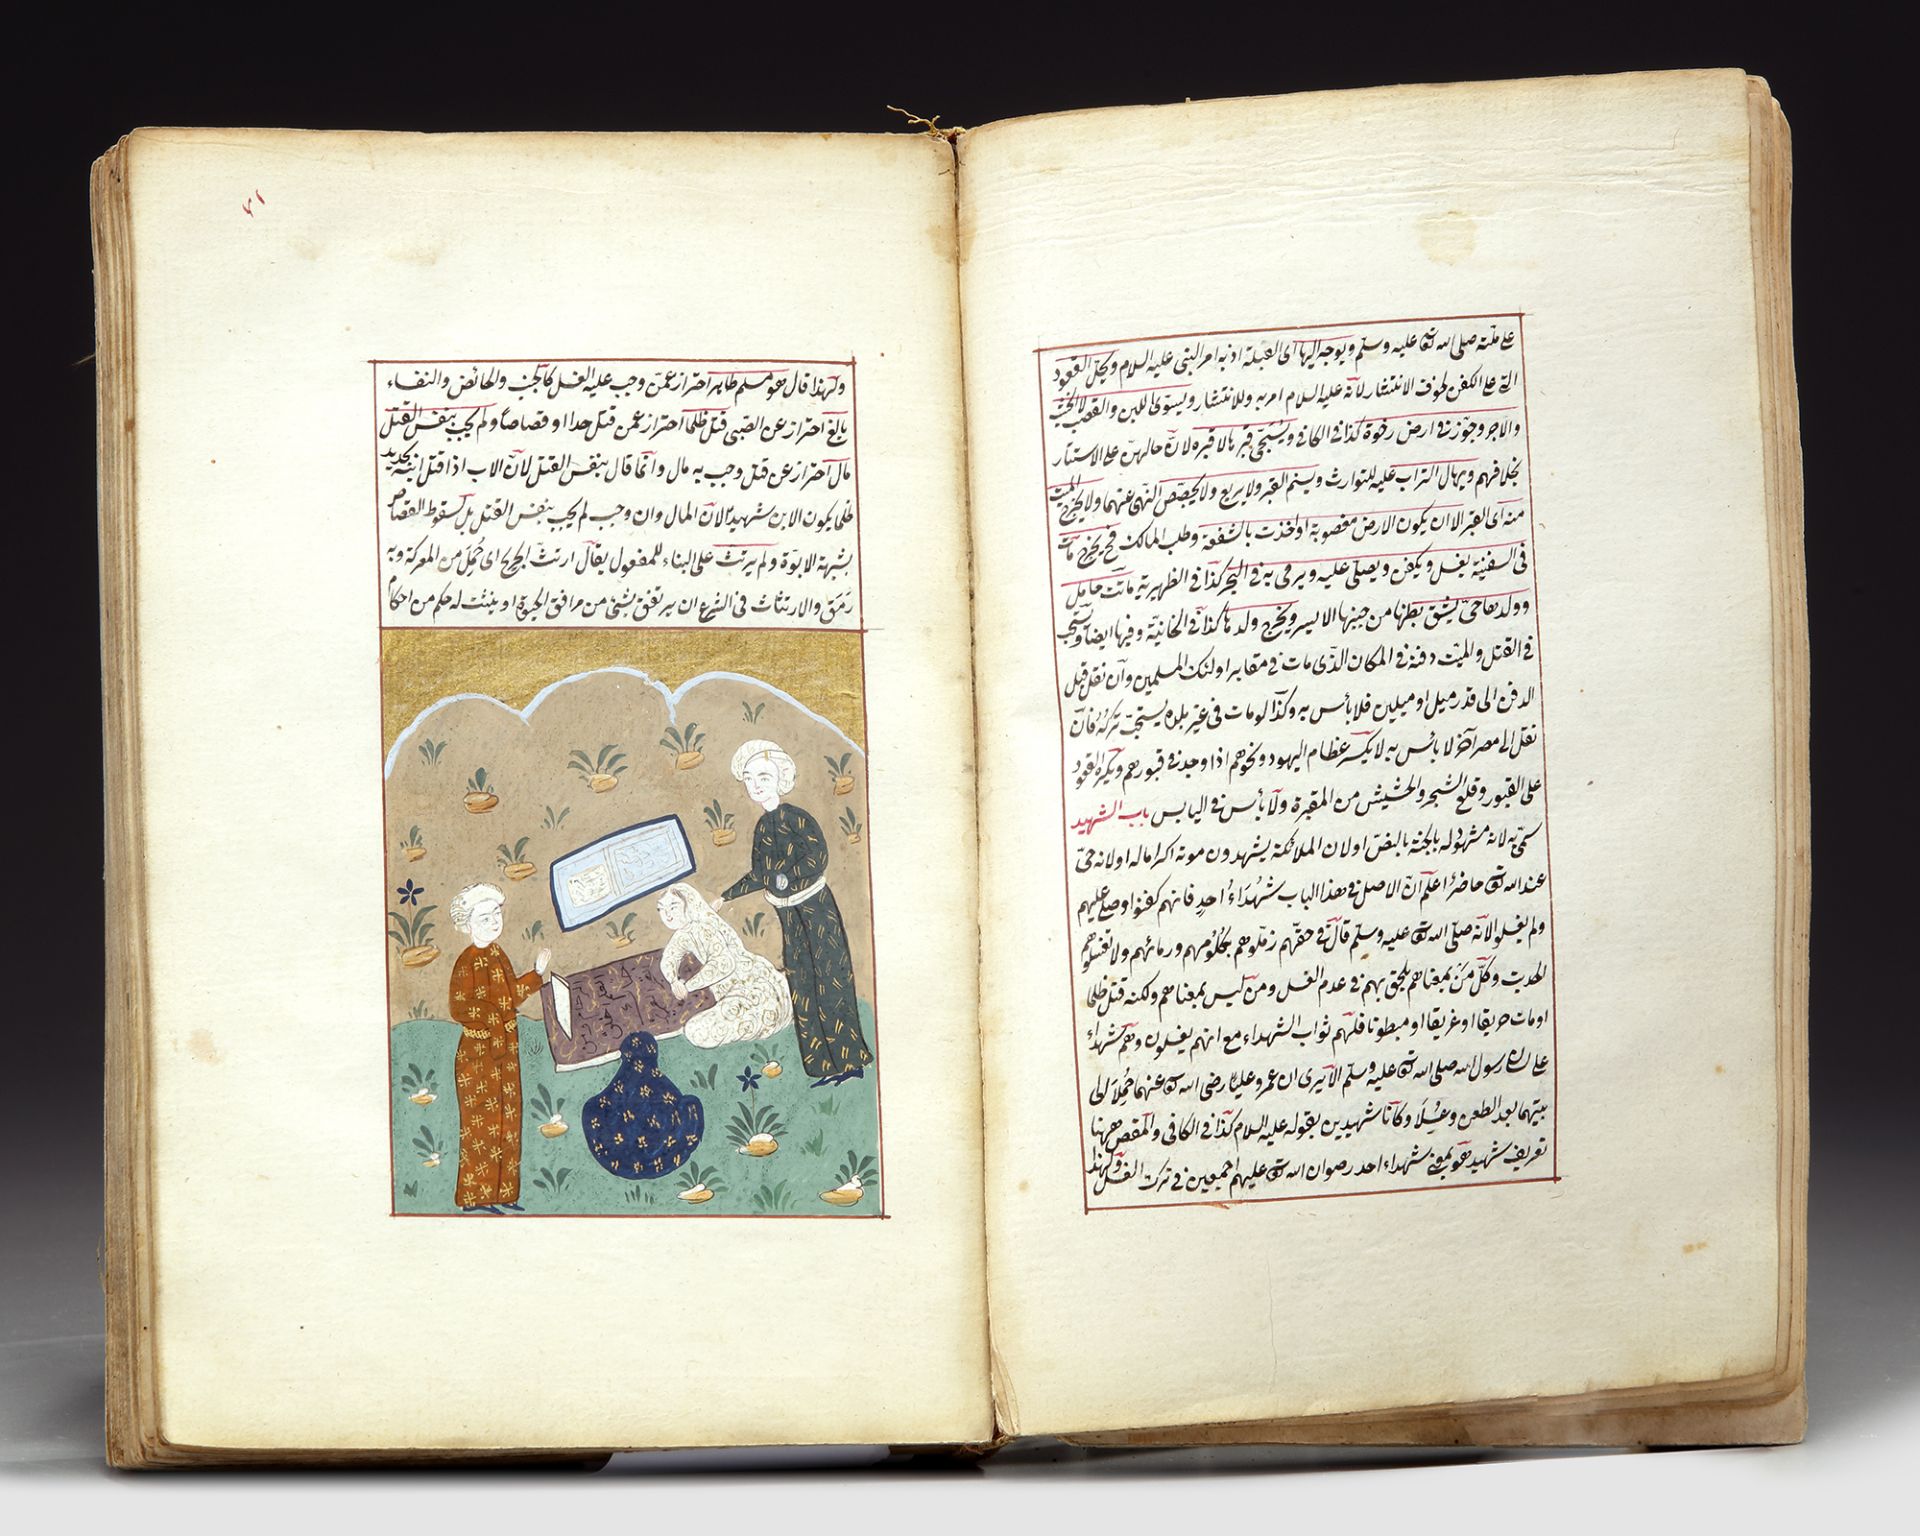 على ملته صلى الله تعالى عليه وسلم ويوجه اليها اى القبلة اذ به امر النبى عليه السلام ويحل العقود
التى على الكفن لخوف الانتشار لانه عليه السلام امر به وللانتشار ويسوى اللبن والقصب لا الخشب
والاجر وجوز فى ارض رخوة كذا فى الكافى ويسجى قبرها لا قبره لان حالهن على الاستتار
بخلافهم ويهال التراب عليه للتوارث ويسنم القبر ولا يربع ولا يجصص للنهى عنهما ولا يخرج الميت
منه اى القبر الا ان يكون الارض مغصوبة او اخذت بالشفعة وطلب المالك فح يخرج مات
فى السفينة يغسل ويكفن ويصلى عليه ويرمى به فى البحر كذا فى الظهيرية ماتت حامل
وولدها حى يشق بطنها من جنبها الايسر ويخرج ولدها كذا فى الخانية وفيها ايضا ويستحب
فى القتل والميت دفنه فى المكان الذى مات فى مقابر اولئك المسلمين وان نقل قبل
الدفن الى قدر ميل او ميلين فلا بأس به وكذا لو مات فى غير بلده يستحب تركه فان
نقل الى مصر آخر لا بأس به لا يكسر عظام اليهود ونحوهم اذا وجد فى قبورهم ويكره القعود
على القبور وقلع الشجر والحشيش من المقبرة ولا بأس فى اليابس باب الشهيد
سمى به لانه مشهود له بالجنة بالنص او لان الملائكة يشهدون موته اكراما له او لانه حى
عند الله تعالى حاضر اعلم ان الاصل فى هذا الباب شهداء احد فانهم كفنوا وصلى عليهم
ولم يغسلوا لانه صلى الله تعالى عليه وسلم قال فى حقهم زملوهم بكلومهم ودمائهم ولا تغسلوهم
الحديث وكل من بمعناهم يلحق بهم فى عدم الغسل ومن ليس بمعناهم ولكنه قتل ظلما
او مات حريقا او غريقا او مبطونا فلهم ثواب الشهداء مع انهم يغسلون وهم شهداء
على لسان رسول الله صلى الله تعالى عليه وسلم الا يرى ان عمر وعليا رضى الله تعالى عنهما حملا الى
بيتهما بعد الطعن وغسلا وكانا شهيدين بقوله عليه السلام كذا فى الكافى والمقصود ههنا
تعريف شهيد هو بمعنى شهداء احد رضوان الله تعالى عليهم اجمعين فى ترك الغسل ولهذا
ولهذا قال هو مسلم طاهر احتراز عمن وجب عليه الغسل كالجنب والحائض والنفساء
بالغ احتراز عن الصبى قتل ظلما احتراز عمن قتل حدا او قصاصا ولم يجب بنفس القتل
مال احتراز عن قتل وجب به مال وانما قال بنفس القتل لان الاب اذا قتل ابنه بحديد
ظلما يكون الابن شهيدا لان المال وان وجب لم يجب بنفس القتل بل لسقوط القصاص
بشبهة الابوة ولم يرتث على البناء للمفعول يقال ارتث الجريح اى حمل من المعركة وبه
رمق والارتثاث فى الشرع ان يرتفق بشئ من مرافق الحيوة او يثبت له حكم من احكام